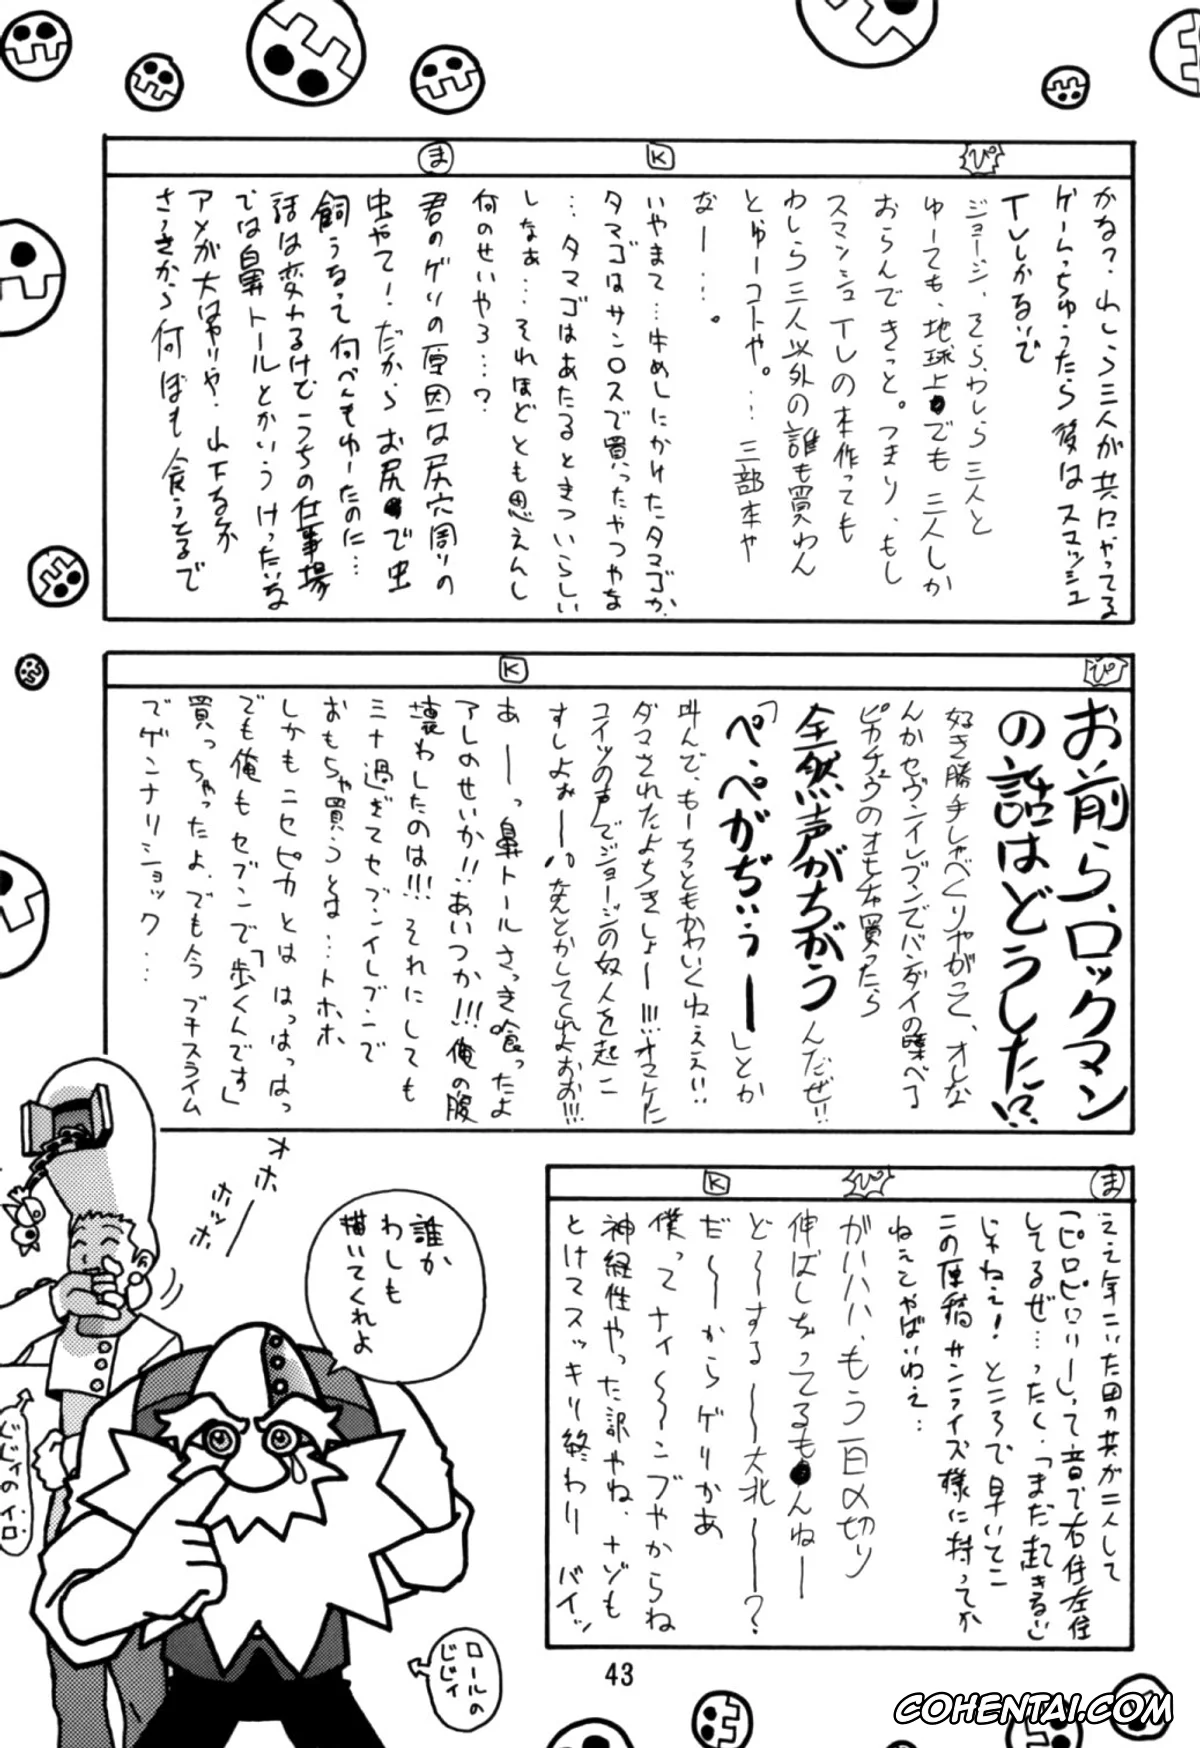 ぴ
K
ま
かな?、わしら三人が共にやってる
ゲームっちゅうたら後はスマッシュ
TVしかないで
ジョージ、そら、わしら三人と
ゆーても、地球上でも三人しか
おらんできっと。つまり、もし
スマッシュTVの本作っても
わしら三人以外の誰も買わん
とゆーコトや。…三部本や
なー…。
いやまて…牛めしにかけたタマゴか、
タマゴはサンロスで買ったやつやな
…タマゴはあたるときついらしい
しなぁ…それほどとも思えんし
何のせいやろ…?
君のゲリの原因は尻穴周りの
虫やて!だからお尻で虫
飼うなって何べんもゆーたのに…
話は変わるけどうちの仕事場
では鼻トールとかいうけったいな
アメが大はやりや。山下るか
さっきから何ぼも食うとるで
ぴ
K
お前ら、ロックマン
の話はどうした!?
好き勝手しゃべくりやがって、オレな
んかセヴンイレブンでバンダイの喋べる
ピカチュウのオモチャ買ったら
全然声がちがうんだぜ!!
「ペ、ペがぢぃうー」とか
叫んで、もーちっともかわいくねぇえ!!
ダマされたよちきしょー!!!オマケに
コイツの声でジョージの奴人を起こ
すしよぉー!!なんとかしてくれよおお!!!
あーーっ鼻トールさっき喰ったよ
アレのせいか!!あいつか!!!俺の腹
壊わしたのは!!!それにしても
ミナ過ぎてセブンイレブンで
おもちゃ買うとは…トホホ
しかもニセピカとははっはっはっ
でも俺もセブンで「歩くんです」
買っちゃったよ。でも今プチスライム
でゲンナリショック…
ま
ぴ
K
ええ年こいた男共が二人して
「ピロピロリー」って音で右往左往
してるぜ…ったく、「まだ起きるな」
じゃねェ!ところで早いてこ
この原稿サンライズ様に持ってか
ねえとやばいねえ…
ガハハハ、もう一日〆切り
伸ばしちってるもんねー
ど〜〜する〜〜大北〜〜?
だ〜〜からゲリかあ
僕ってナイ〜〜ンブやからね
神経性やった訳やね、ナゾも
とけてスッキリ終わりバイッ
オホホ
ホッホー
誰か
わしも
描いてくれよ
じじィのイロ
ロールの
じじィ
43
COHENTAI.COM